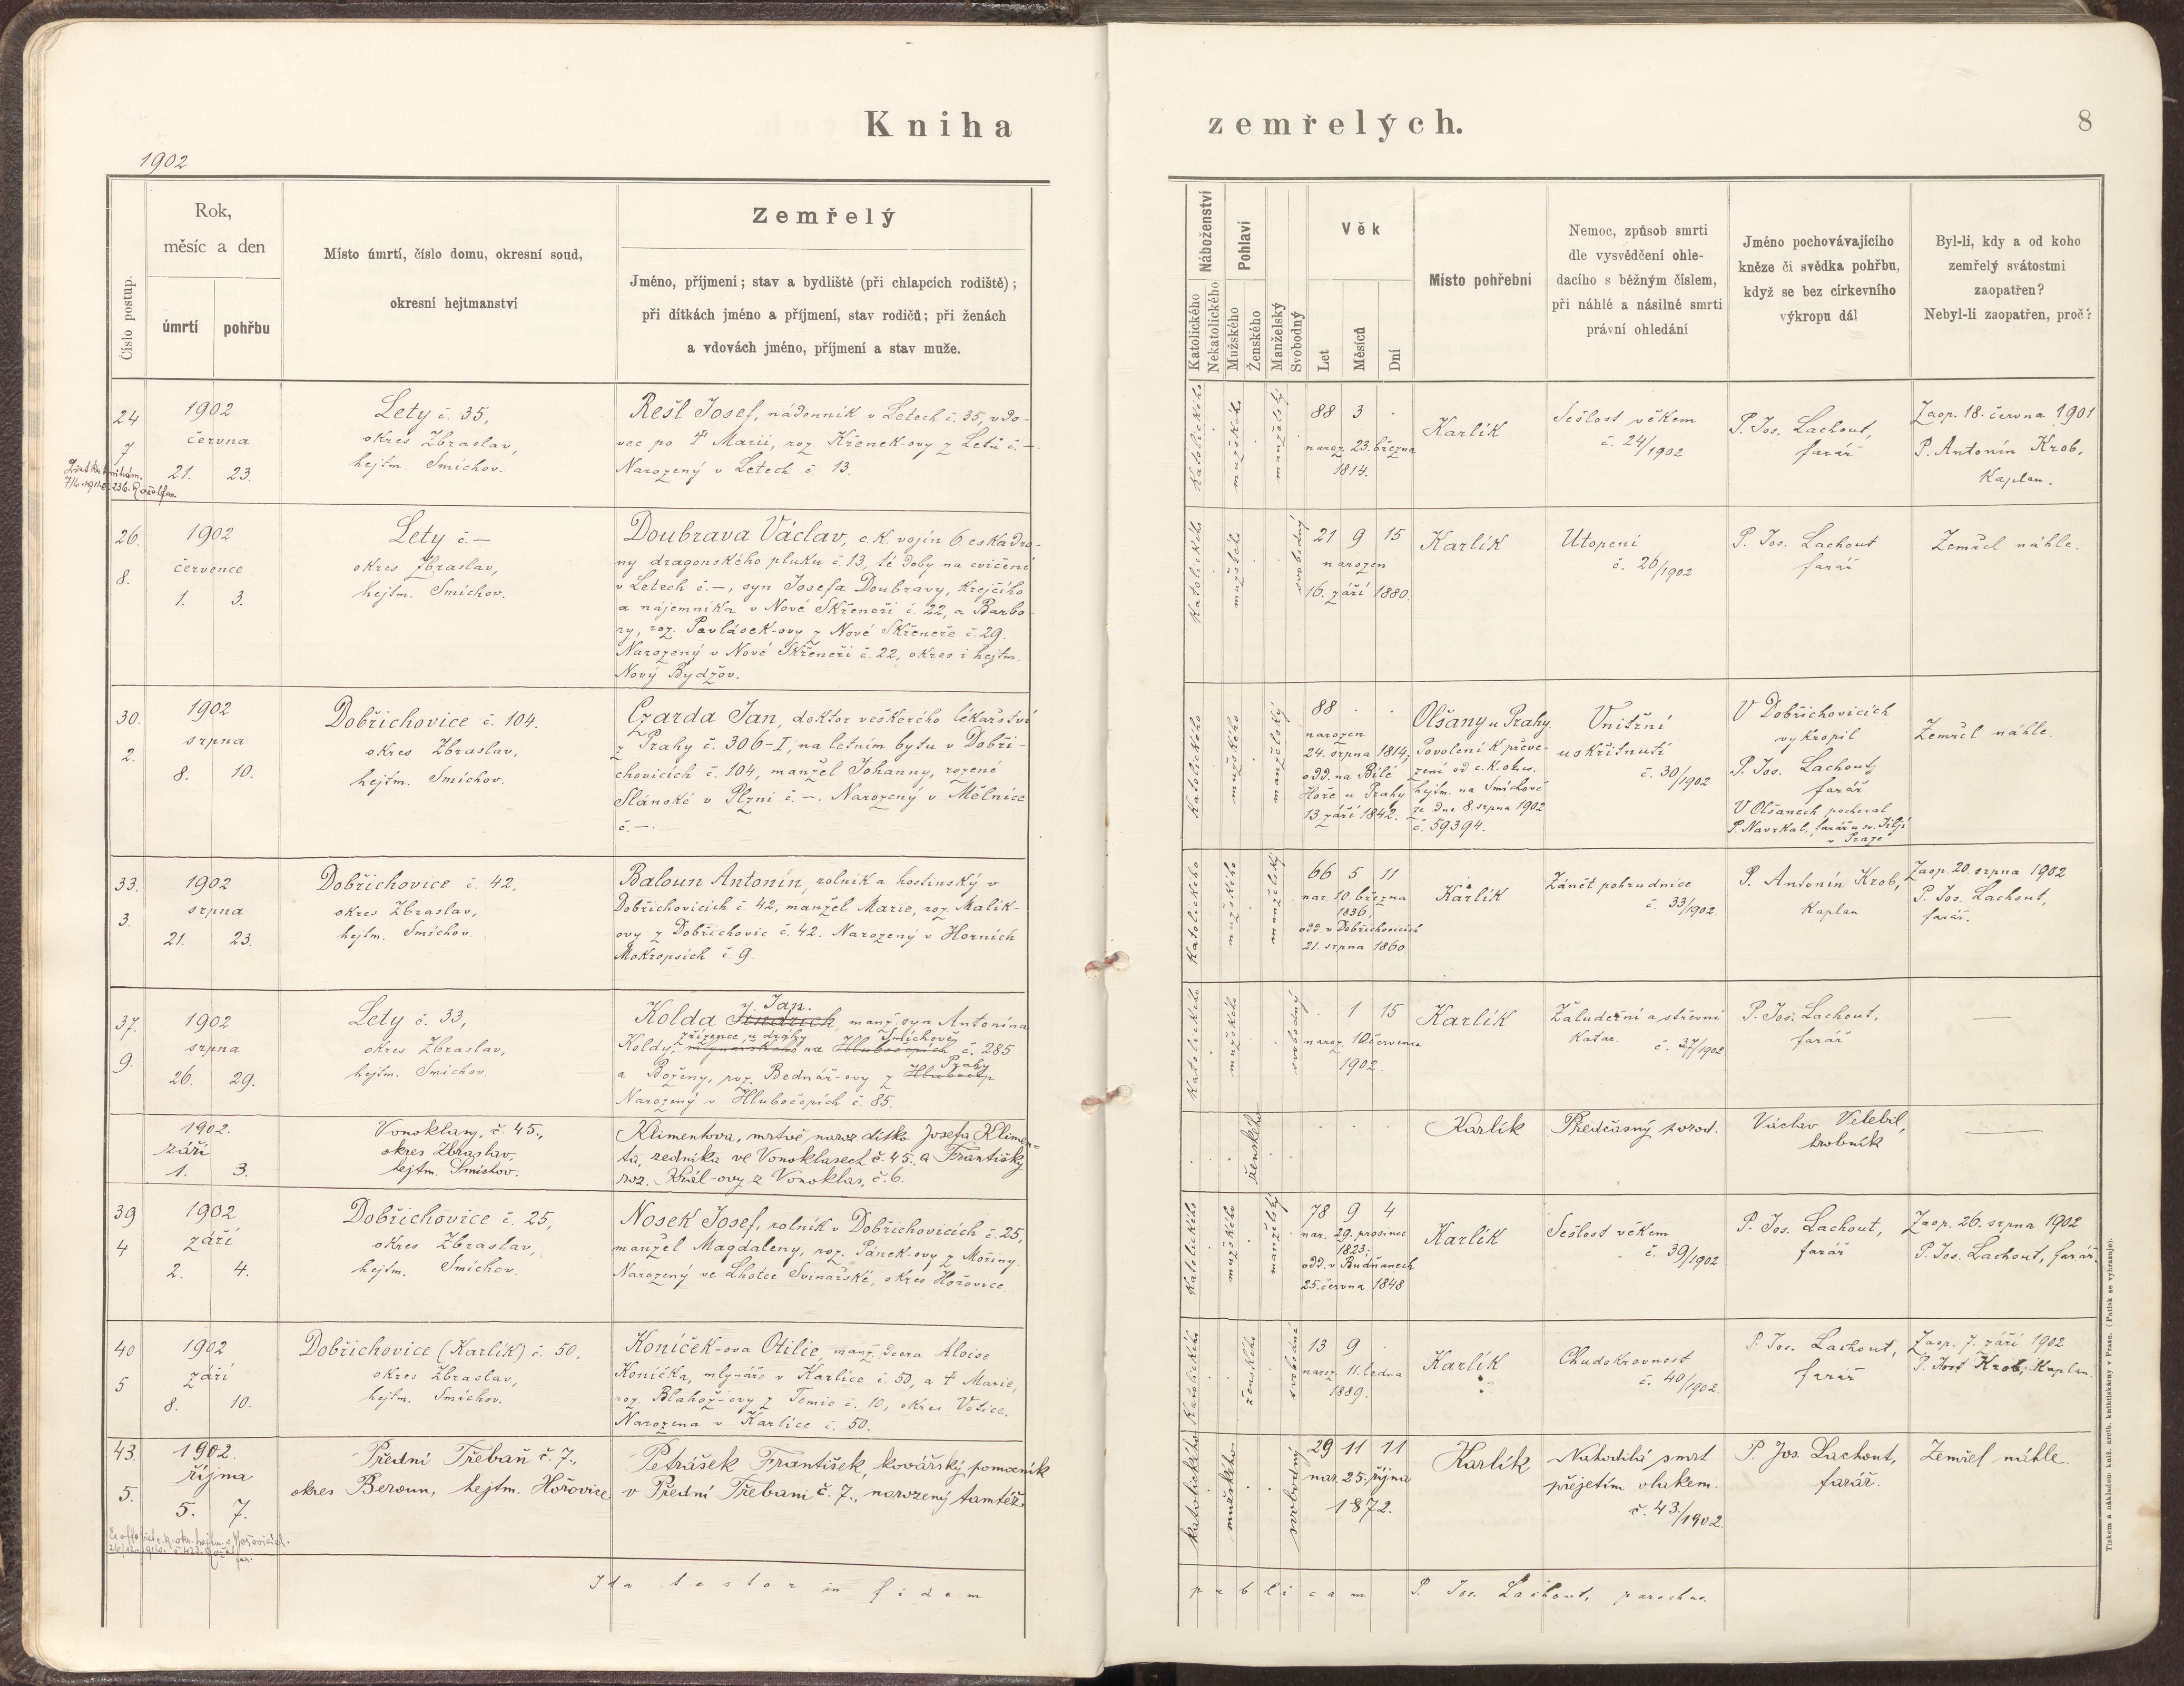 Kniha zemřelých.
8
1902
Číslo postup.
Rok,
měsíc a den
úmrtí
pohřbu
Místo úmrtí, číslo domu, okresní soud,
okresní hejtmanství
Zemřelý
Jméno, příjmení; stav a bydliště (při chlapcích rodiště);
při dítkách jméno a příjmení, stav rodičů; při ženách
a vdovách jméno, příjmení a stav muže.
Náboženství
Katolického
Nekatolického
Pohlaví
Mužského
Ženského
Manželský
Svobodný
Věk
Let
Měsíců
Dní
Místo pohřební
Nemoc, způsob smrti
dle vysvědčení ohle-
dacího s běžným číslem,
při náhlé a násilné smrti
právní ohledání
Jméno pochovávajícího
kněze či svědka pohřbu,
když se bez církevního
výkropu dál
Byl-li, kdy a od koho
zemřelý svátostmi
zaopatřen?
Nebyl-li zaopatřen, proč?
24
7
1902
června
21. 23.
Lety č. 35,
okres Zbraslav,
hejtm. Smíchov.
Rešl Josef, nádenník v Letech č. 35, vdo-
vec po † Marii, roz. Křenek-ovy z Letů č. –.
Narozený v Letech č. 13.
katolického
mužského
manželský
88 3 .
naroz. 23. března
1814.
Karlík
Sešlost věkem
č. 24/1902
P. Jos. Lachout,
farář
Zaop. 18. června 1901
P. Antonín Krob,
Kaplan.
26.
8.
1902
července
1. 3.
Lety č. –
okres Zbraslav,
hejtm. Smíchov.
Doubrava Václav, c.k. vojín 6. eskadro-
ny dragonského pluku č. 13, té doby na cvičení
v Letech č. –, syn Josefa Doubravy, krejčího
a nájemníka v Nové Skřeneři č. 22, a Barbo-
ry, roz. Pavlásek-ovy z Nové Skřeneře č. 29.
Narozený v Nové Skřeneři č. 22, okres i hejtm.
Nový Bydžov.
katolického
mužského
svobodný
21 9 15
narozen
16. září 1880.
Karlík
Utopení
č. 26/1902
P. Jos. Lachout
farář
Zemřel náhle.
30.
2.
1902
srpna
8. 10.
Dobřichovice č. 104.
okres Zbraslav,
hejtm. Smíchov.
Czarda Jan, doktor veškerého lékařství
z Prahy č. 306-I; na letním bytu v Dobři-
chovicích č. 104, manžel Johanny, rozené
Slánské v Plzni č. –. Narozený v Mělníce
č. –.
katolického
mužského
manželský
88 . .
narozen
24. srpna 1814;
odd. na Bílé
Hoře u Prahy
13. září 1842.
Olšany u Prahy.
Povolení k převe-
zení od c.k. okres.
hejtm. na Smíchově
ze dne 8. srpna 1902
č. 59394.
Vnitřní
uskřítnutí
č. 30/1902
V Dobřichovicích
vykropil
P. Jos. Lachout,
farář
V Olšanech pochoval
P. Navrkal, farář u sv. Jiljí
v Praze
Zemřel náhle.
33.
3.
1902
srpna
21. 23.
Dobřichovice č. 42,
okres Zbraslav,
hejtm. Smíchov.
Baloun Antonín, rolník a hostinský v
Dobřichovicích č. 42, manžel Marie, roz. Malík-
ovy z Dobřichovic č. 42. Narozený v Horních
Mokropsích č. 9.
katolického
mužského
manželský
66 5 11
nar. 10. března
1836,
odd. v Dobřichovicích
21. srpna 1860.
Karlík
Zánět pohrudnice
č. 33/1902.
P. Antonín Krob,
Kaplan
Zaop. 20. srpna 1902
P. Jos. Lachout,
farář.
37.
9.
1902
srpna
26. 29.
Lety č. 33,
okres Zbraslav,
hejtm. Smíchov.
Jan.
Kolda Jindřich, manž. syn Antonína
zřízence u dráhy Smíchově
Koldy, mlynářského na Hlubočepích č. 285
Prahy
a Boženy, roz. Bednář-ovy z Hlubočep
Narozený v Hlubočepích č. 85.
katolického
mužského
svobodný
. 1 15
naroz. 10 července
1902.
Karlík
Žaludeční a střevní
Katar.
č. 37/1902.
P. Jos. Lachout,
farář
—
1902.
září
1. 3.
Vonoklasy, č. 45.,
okres Zbraslav,
hejtm. Smíchov.
Klimentova, mrtvě naroz dítko Josefa Klimen-
ta, zedníka ve Vonoklasech č. 45., a Františky
roz. Král-ovy z Vonoklas, č. 6.
ženského
Karlík
Předčasný porod.
Václav Velebil,
hrobník
—
39
4
1902
září
2. 4.
Dobřichovice č. 25,
okres Zbraslav,
hejtm. Smíchov.
Nosek Josef, rolník v Dobřichovicích č. 25,
manžel Magdaleny, roz. Pánek-ovy z Mořiny.
Narozený ve Lhotce Svinařské, okres Hořovice.
katolického
mužského
manželský
78 9 4
nar. 29. prosince
1823;
odd. v Budňanech
25. června 1848
Karlík
Sešlost věkem
č. 39/1902
P. Jos. Lachout,
farář
Zaop. 26. srpna 1902
P. Jos. Lachout, farář.
40
5
1902
září
8. 10.
Dobřichovice (Karlík) č. 50,
okres Zbraslav,
hejtm. Smíchov.
Koníček-ova Otilie, manž. dcera Aloise
Koníčka, mlynáře v Karlíce č. 50, a † Marie,
roz. Blahož-ovy z Temic č. 10, okres Votice.
Narozena v Karlíce č. 50.
katolického
ženského
svobodná
13 9 .
naroz. 11. ledna
1889.
Karlík
Chudokrevnost
č. 40/1902.
P. Jos. Lachout,
farář
Zaop. 7. září 1902
P. Ant Krob, Kaplan.
43.
5.
1902.
října
5. 7.
Přední Třebaň č. 7.,
okres Beroun, hejtm. Hořovice
Petrášek František, kovářský pomocník
v Přední Třebani č. 7., narozený tamtéž
katolického
mužského
svobodný
29 11 11
nar. 25. října
1872.
Karlík
Nahodilá smrt
přejetím vlakem.
č. 43/1902.
P. Jos. Lachout,
farář.
Zemřel náhle.
Ita testor in fidem publicam P. Jos. Lachout, parochus.
Tiskem a nákladem kníž. arcib. knihtiskárny v Praze. (Patisk se vyhrazuje).